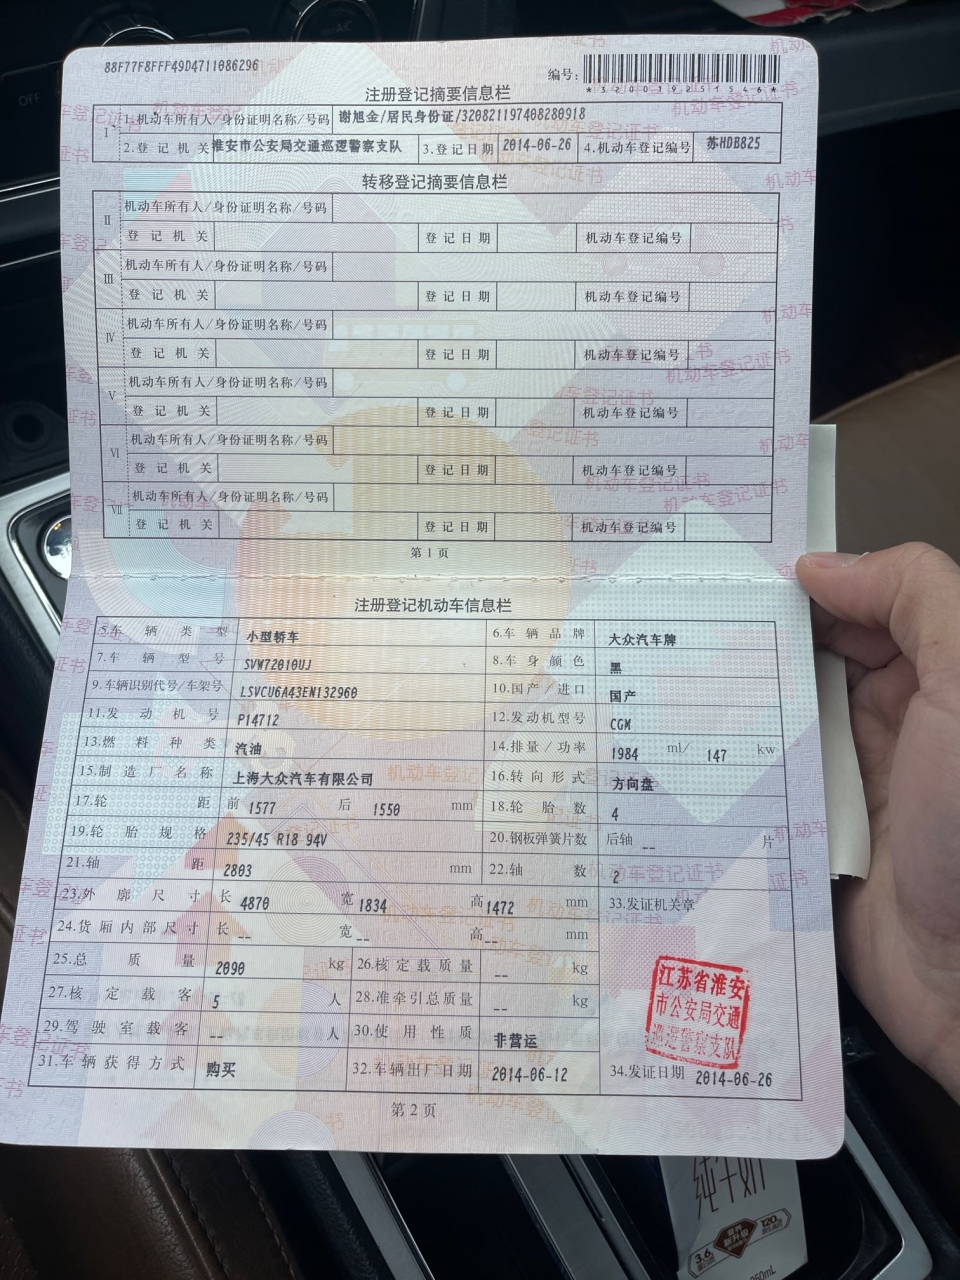 88F77F8FFF49D4711086296
编号:
*320019251546*
注册登记摘要信息栏
I 1.机动车所有人/身份证明名称/号码 谢旭金/居民身份证/320821197408280918
2.登记机关 淮安市公安局交通巡逻警察支队 3.登记日期 2014-06-26 4.机动车登记编号 苏HDB825
转移登记摘要信息栏
II 机动车所有人/身份证明名称/号码
登记机关 登记日期 机动车登记编号
III 机动车所有人/身份证明名称/号码
登记机关 登记日期 机动车登记编号
IV 机动车所有人/身份证明名称/号码
登记机关 登记日期 机动车登记编号
V 机动车所有人/身份证明名称/号码
登记机关 登记日期 机动车登记编号
VI 机动车所有人/身份证明名称/号码
登记机关 登记日期 机动车登记编号
VII 机动车所有人/身份证明名称/号码
登记机关 登记日期 机动车登记编号
第1页
注册登记机动车信息栏
5.车辆类型 小型轿车 6.车辆品牌 大众汽车牌
7.车辆型号 SVW72010UJ 8.车身颜色 黑
9.车辆识别代号/车架号 LSVCU6A43EN132960 10.国产/进口 国产
11.发动机号 P14712 12.发动机型号 CGM
13.燃料种类 汽油 14.排量/功率 1984 ml/ 147 kw
15.制造厂名称 上海大众汽车有限公司 16.转向形式 方向盘
17.轮距 前 1577 后 1550 mm 18.轮胎数 4
19.轮胎规格 235/45 R18 94V 20.钢板弹簧片数 后轴 -- 片
21.轴距 2803 mm 22.轴数 2
23.外廓尺寸 长 4870 宽 1834 高 1472 mm 33.发证机关章
24.货厢内部尺寸 长 -- 宽 -- 高 -- mm
25.总质量 2090 kg 26.核定载质量 -- kg
27.核定载客 5 人 28.准牵引总质量 -- kg
29.驾驶室载客 -- 人 30.使用性质 非营运
31.车辆获得方式 购买 32.车辆出厂日期 2014-06-12 34.发证日期 2014-06-26
江苏省淮安
市公安局交通
巡逻警察支队
第2页
纯牛奶
3.6
120